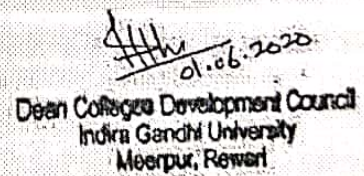 01.06.2020
Dean Colleges Development Council
Indira Gandhi University
Meerpur, Rewari